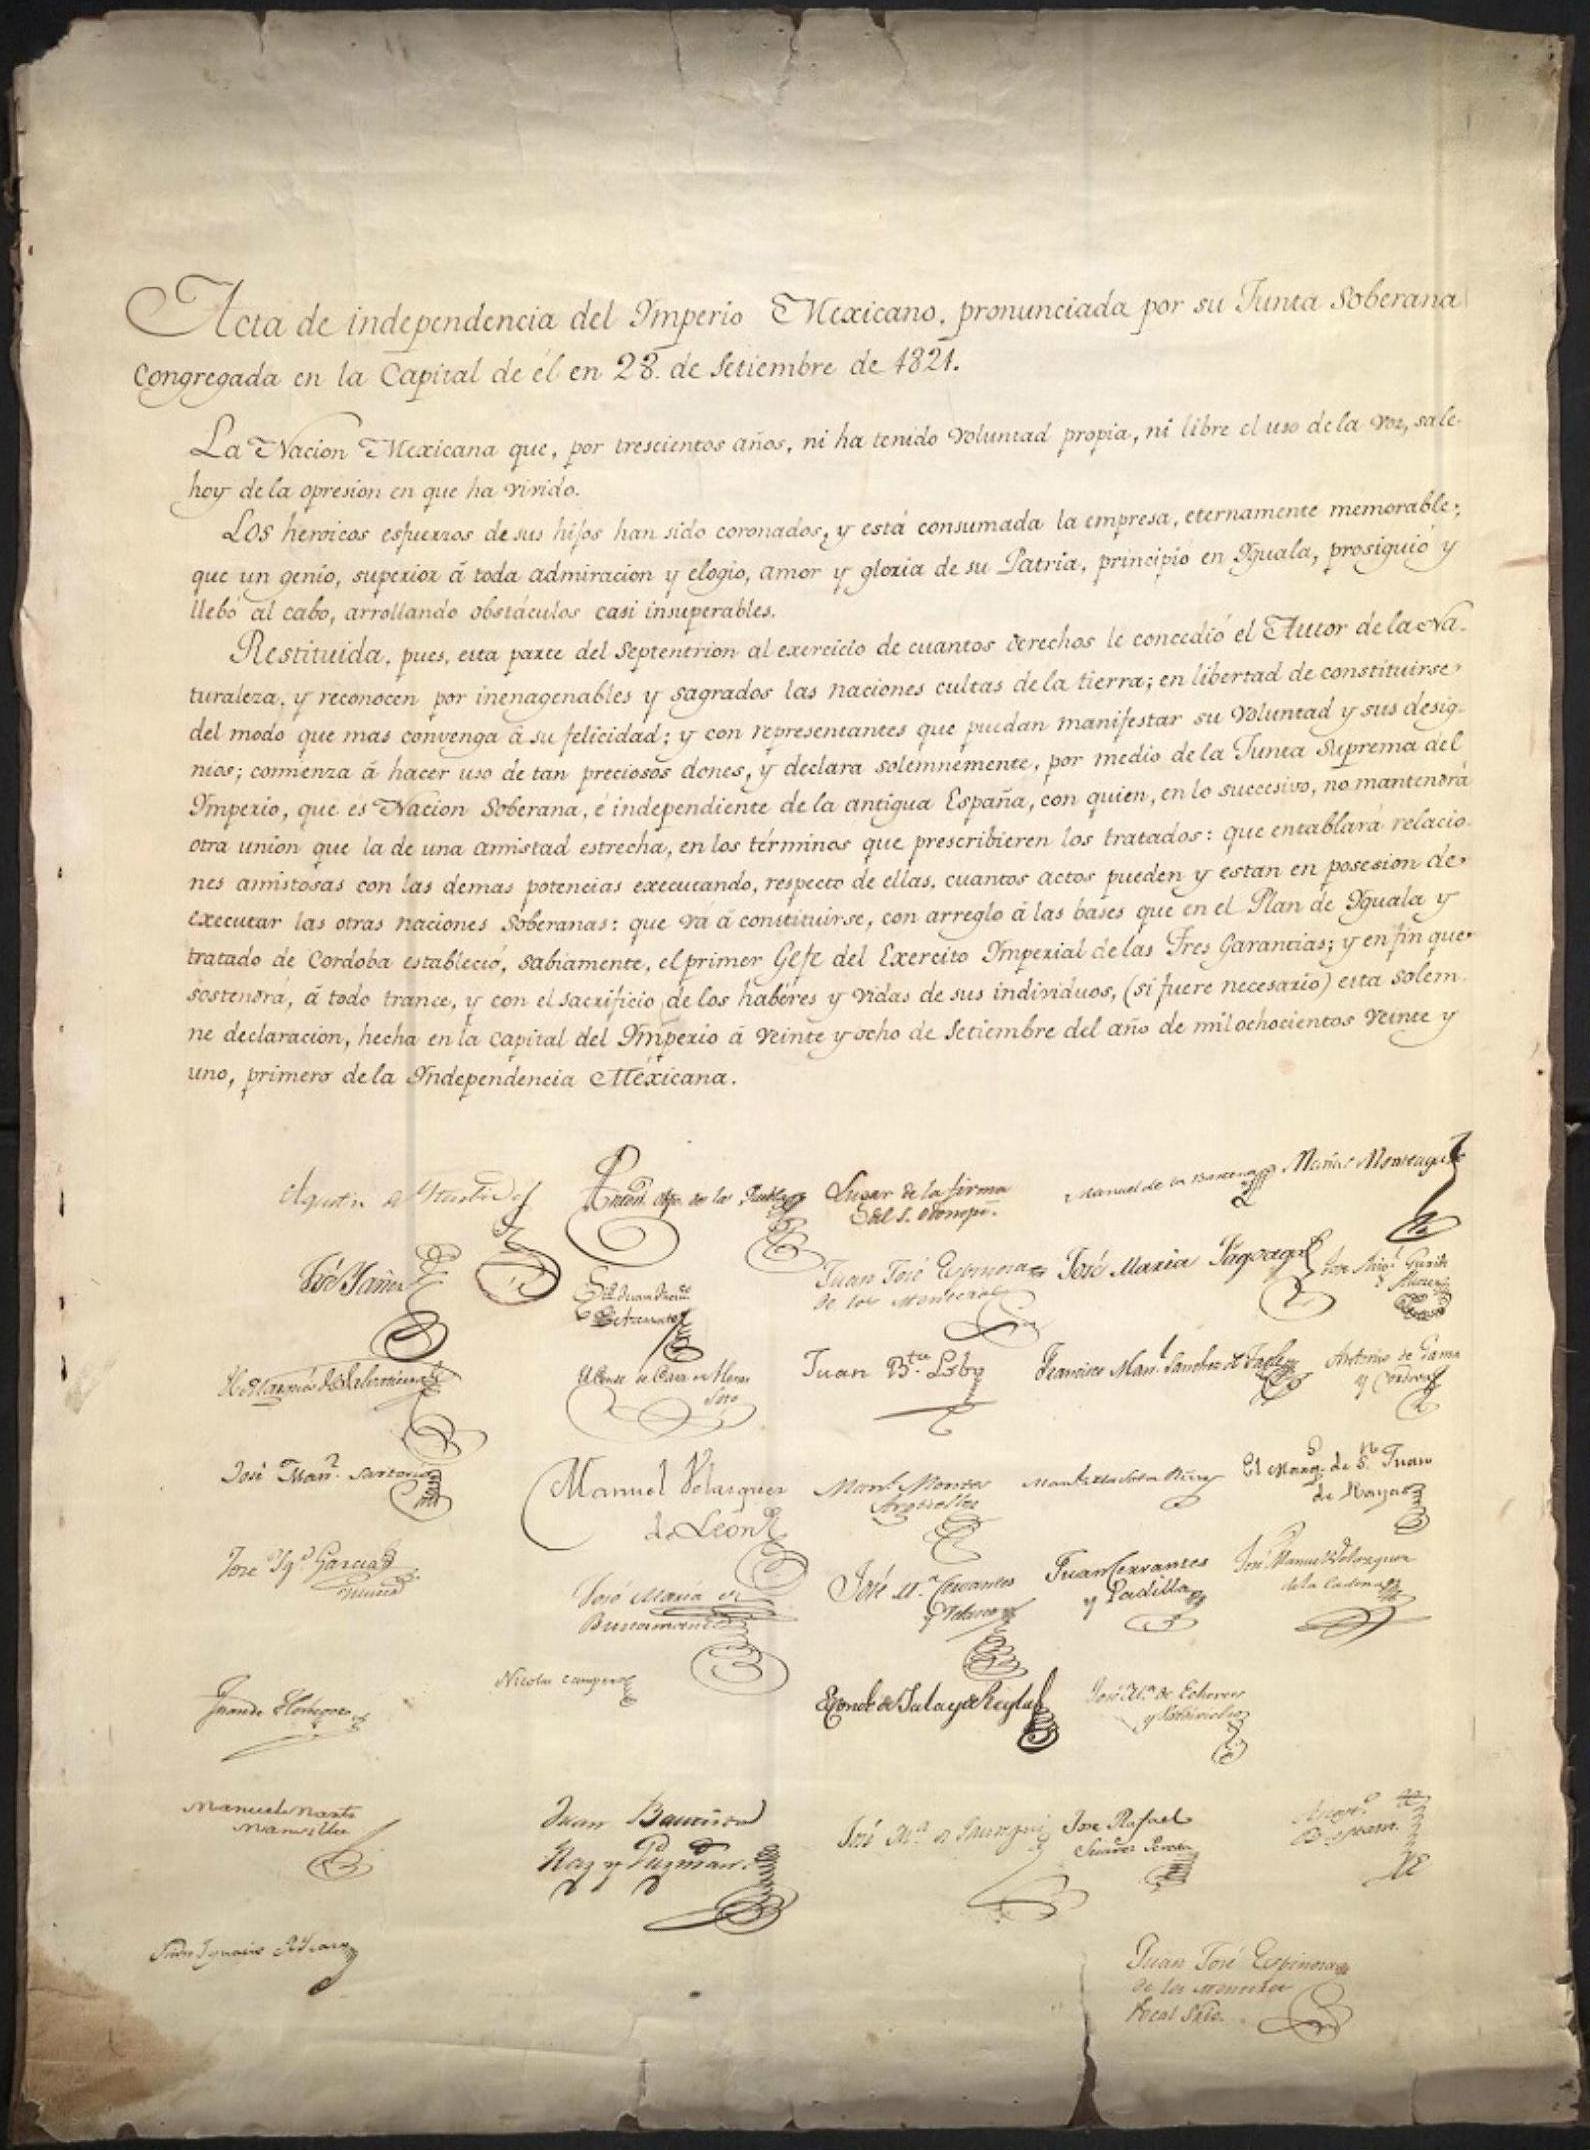 Acta de independencia del Ymperio Mexicano, pronunciada por su Junta Soberana
congregada en la Capital de él en 28. de Setiembre de 1821.
La Nacion Mexicana que, por trescientos años, ni ha tenido voluntad propia, ni libre el uso de la voz, sale
hoy de la opresion en que ha vivido.
Los heroicos esfuerzos de sus hijos han sido coronados, y está consumada la empresa, eternamente memorable,
que un genio, superior á toda admiracion y elogio, amor y gloria de su Patria, principió en Yguala, prosiguió y
llebó al cabo, arrollando obstáculos casi insuperables.
Restituida, pues, esta parte del Septentrion al exercicio de cuantos derechos le concedió el Autor de la Na-
turaleza, y reconocen por inenagenables y sagrados las naciones cultas de la tierra; en libertad de constituirse
del modo que mas convenga á su felicidad; y con representantes que puedan manifestar su voluntad y sus desig-
nios; comienza á hacer uso de tan preciosos dones, y declara solemnemente, por medio de la Junta Suprema del
Ymperio, que és Nacion Soberana, é independiente de la antigua España, con quien, en lo succesivo, no mantendrá
otra union que la de una amistad estrecha, en los términos que prescribieren los tratados: que entablará relacio-
nes amistosas con las demas potencias executando, respecto de ellas, cuantos actos pueden y estan en posesion de
executar las otras naciones Soberanas: que vá á constituirse, con arreglo á las bases que en el Plan de Yguala y
tratado de Cordoba estableció, sabiamente, el primer Gefe del Exercito Ymperial de las Tres Garantias; y en fin que
sostendrá, á todo trance, y con el sacrificio de los haberes y vidas de sus individuos, (si fuere necesario) esta solem-
ne declaracion, hecha en la capital del Ymperio á veinte y ocho de Setiembre del año de mil ochocientos veinte y
uno, primero de la Yndependencia Mexicana.
Agustin de Yturbide
Anton. Obpo. de la Puebla
Lugar de la firma
del S. Odonojú.
Manuel de la Barcena
Matias Monteagudo
José Yañez
Juan José Espinosa
de los Monteros
José Maria Fagoaga
Juan Bta. Lobo
Francisco Manl. Sanchez de Tagle
Antonio de Gama
y Cordova
José Manl. Sartorio
Manuel Velazquez
de León
Manl. Montes
Argüelles
El Marqs. de Sn. Juan
de Rayas
José Ygo. Garcia
José Maria de
Bustamante
José Ma. Cervantes
y Velasco
Juan Cervantes
y Padilla
José Manuel Velazquez
de la Cadena
Juan de Horbegoso
Nicolas Campero
El Conde de Jala y de Regla
José Ma. de Echevers
y Valdivielso
Manuel Martz
Mansilla
Juan Bautista
Raz y Guzman.
José Ma. de Jauregui
Jose Rafael
Suarez Pereda
Juan Ygnacio
Juan José Espinosa
de los Monteros
Vocal Srio.